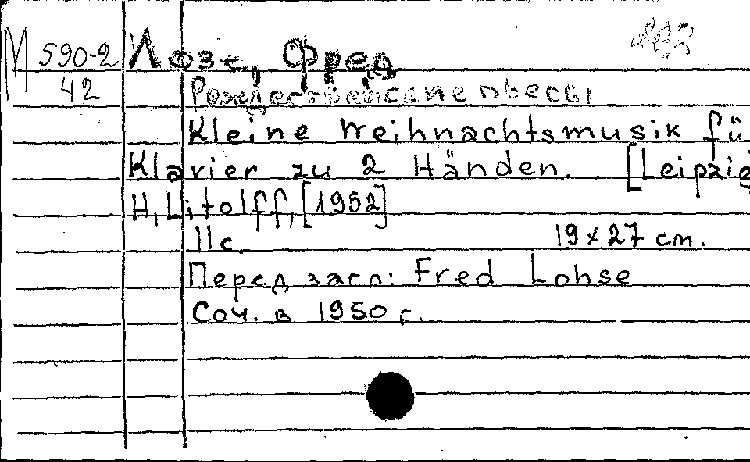 М 590-2 Лозе, Фред
42
Рождественские пьесы
Kleine Weihnachtsmusik fü
Klavier zu 2 Händen. [Leipzig
H. Litolff, [1952]
11 с. 19 x 27 cm.
Перед загл: Fred Lohse
Соч. в 1950 г.